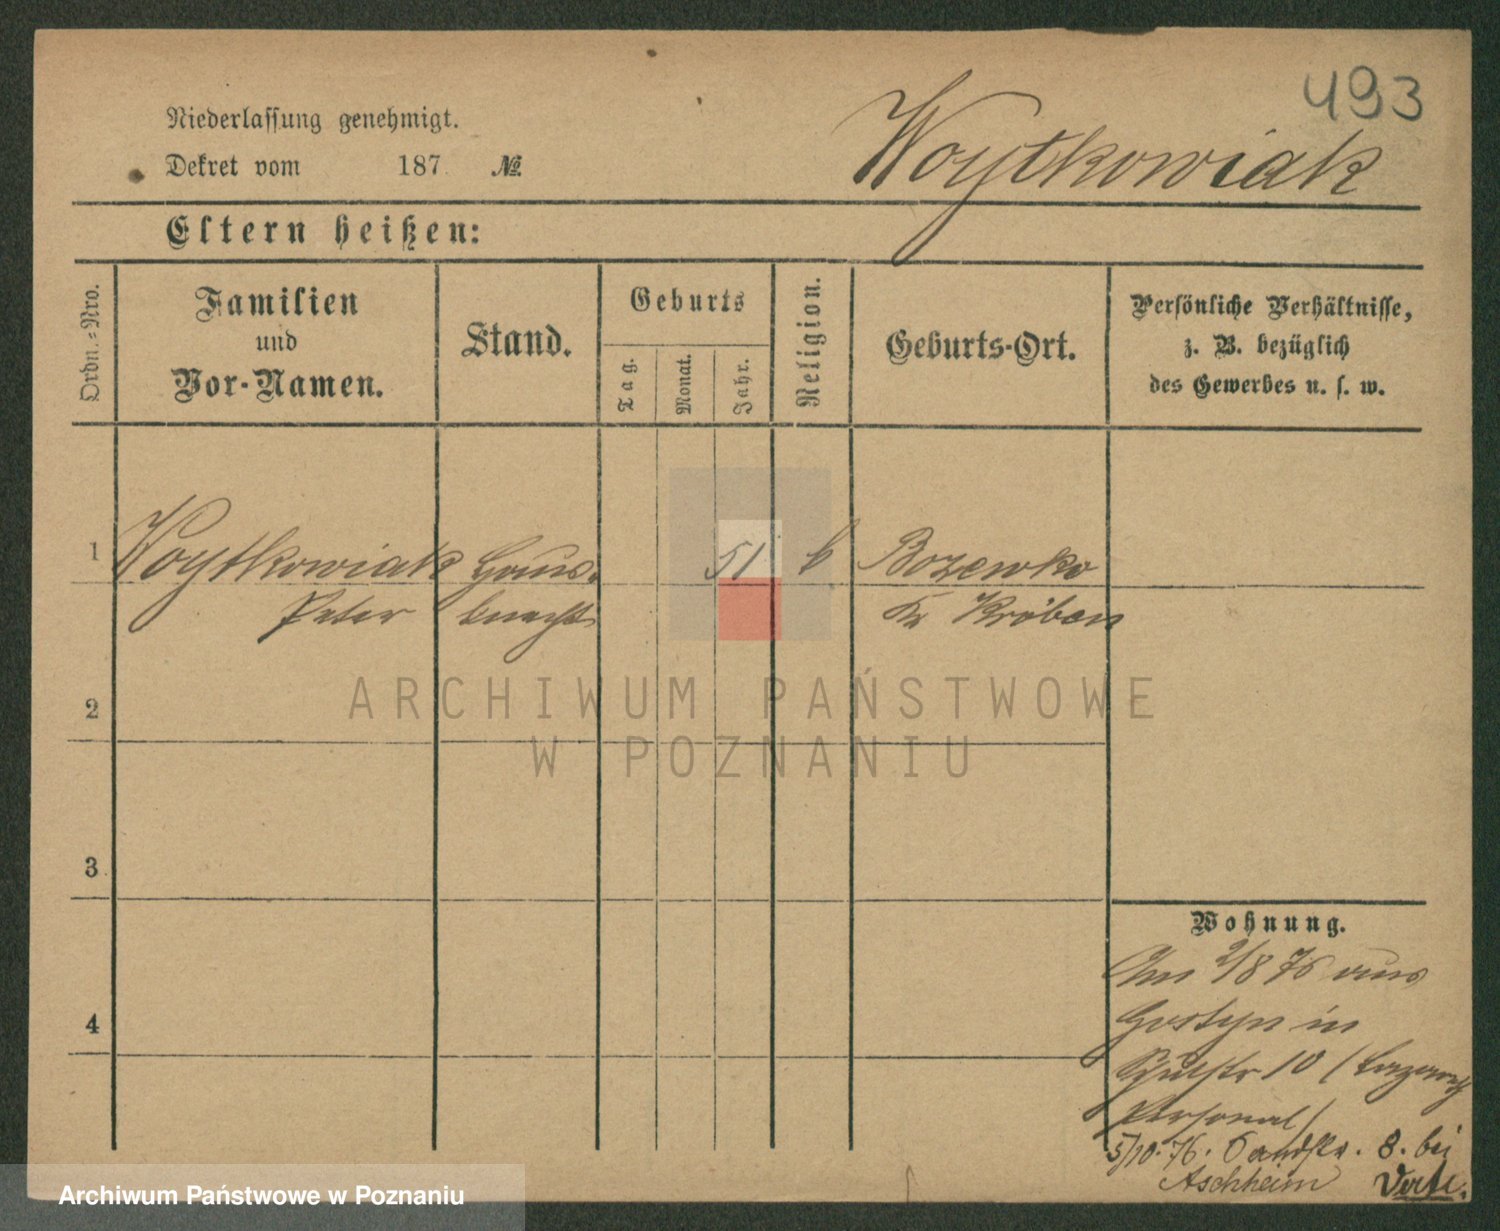 493
Niederlassung genehmigt.
Woytkowiak
Dekret vom 187 №
Eltern heißen:
Ordn.=Nro.
Familien
und
Vor-Namen.
Stand.
Geburts
Tag.
Monat.
Jahr.
Religion.
Geburts-Ort.
Persönliche Verhältnisse,
z. B. bezüglich
des Gewerbes u. s. w.
1 Woytkowiak Haus- 51 k Bozewko
Peter knecht Kr Kröben
2
ARCHIWUM PAŃSTWOWE
W POZNANIU
3
Wohnung.
Am 2/8 76 aus
4
Gostyn in
Schulstr 10 (Lazareth
Personal)
5/10. 76. Sandstr. 8. bei
Aschheim
Archiwum Państwowe w Poznaniu